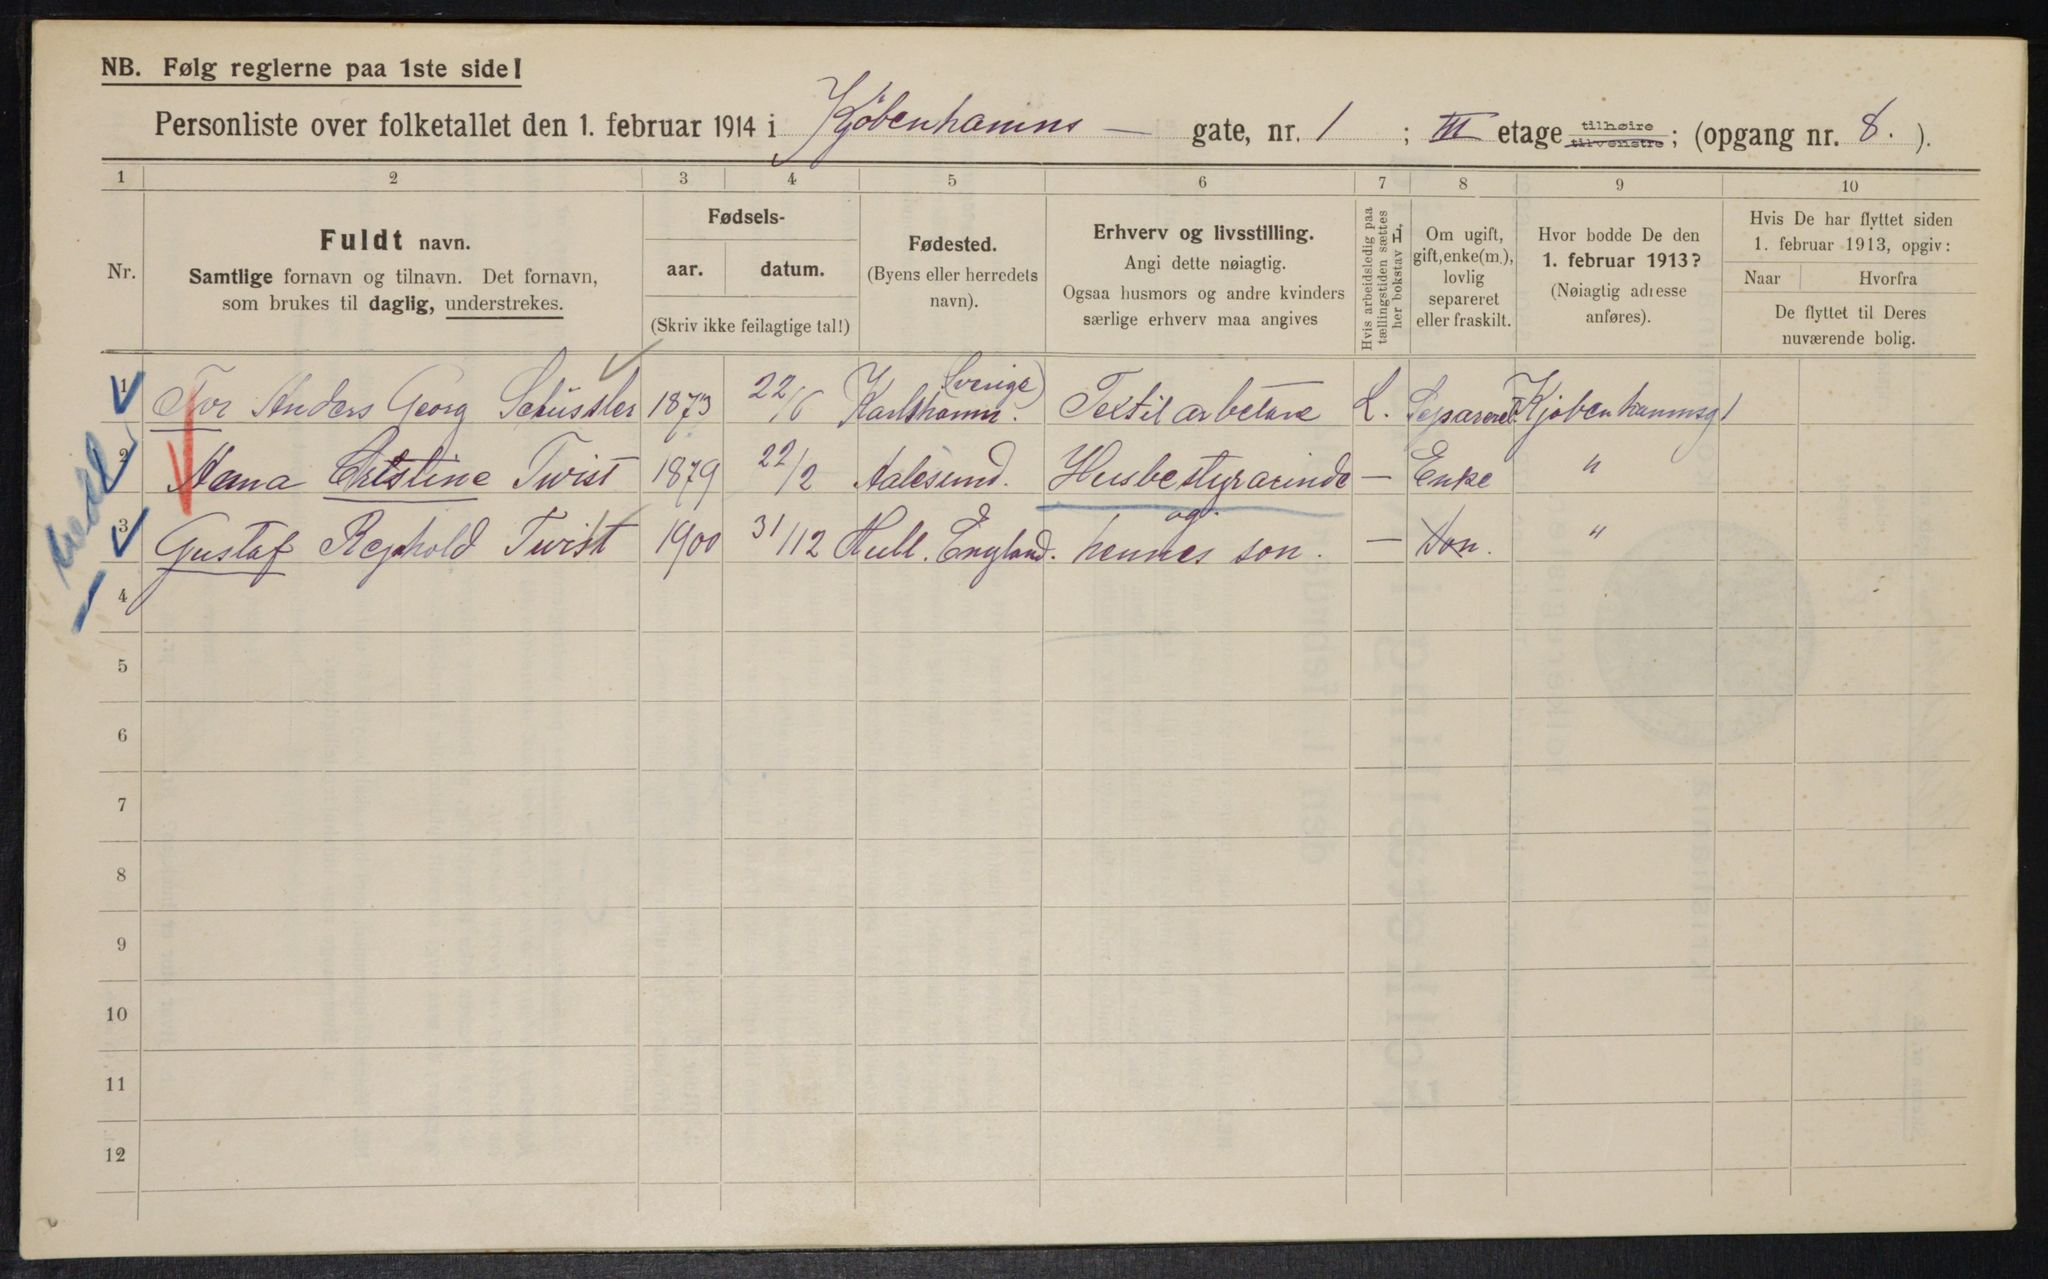 NB. Følg reglerne paa 1ste side!
Personliste over folketallet den 1. februar 1914 i Kjöbenhamns — gate, nr. 1 ; III etage tilhøire tilvenstre ; (opgang nr. 8. ).
1 2 3 4 5 6 7 8 9 10
Nr.
Fuldt navn.
Samtlige fornavn og tilnavn. Det fornavn,
som brukes til daglig, understrekes.
Fødsels-
aar. datum.
(Skriv ikke feilagtige tal!)
Fødested.
(Byens eller herredets
navn).
Erhverv og livsstilling.
Angi dette nøiagtig.
Ogsaa husmors og andre kvinders
særlige erhverv maa angives
Hvis arbeidsledig paa
tællingstiden sættes
her bokstav L.
Om ugift,
gift, enke(m.),
lovlig
separeret
eller fraskilt.
Hvor bodde De den
1. februar 1913?
(Nøiagtig adresse
anføres).
Hvis De har flyttet siden
1. februar 1913, opgiv:
Naar Hvorfra
De flyttet til Deres
nuværende bolig.
1 Tor Anders Georg Schüssler 1873 22/6 Karlshamn. (Sverige) Textil arbetare L. Separeret Kjöbenhamnsg 1
2 Anna Cristine Twist 1879 22/2 Aalesund. Husbestyrarinde — Enke "
og
3 Gustaf Twist 1900 31/12 Hull. England. hennes son. — Son. "
4
5
6
7
8
9
10
11
12